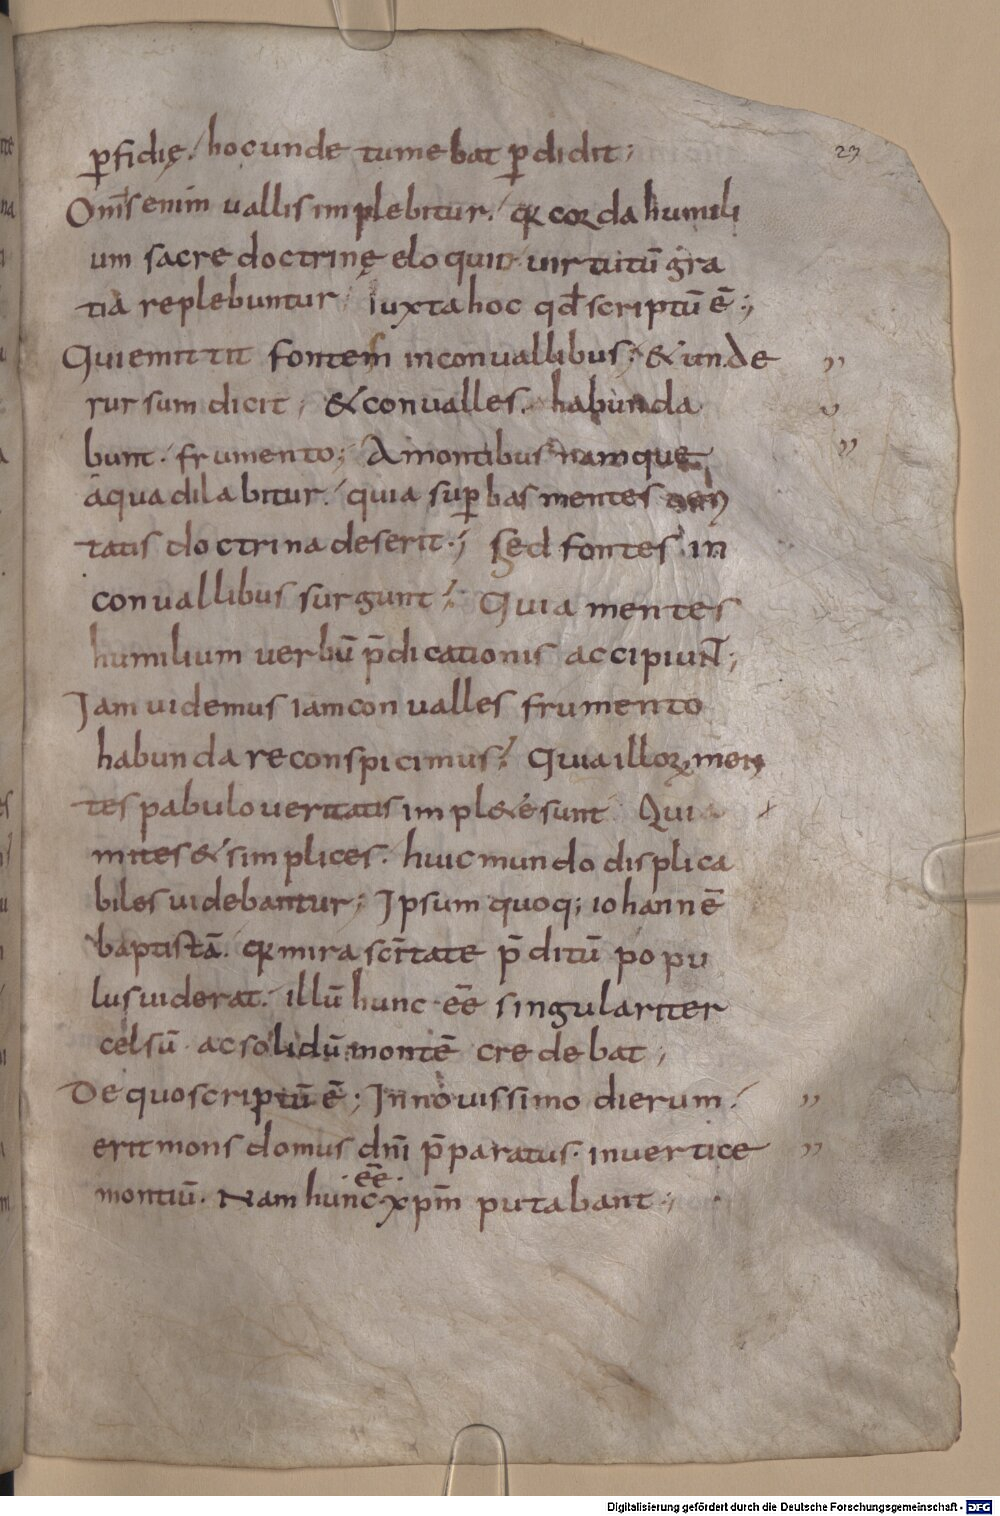 23
ꝑfidię. hoc unde tumebat ꝑdidit;
Om̄s enim uallis implebitur. qꝛ corda humili
um sacre doctrinę eloquio uirtutū gra
tia replebuntur; Iuxta hoc qđ scriptū ē;
Qui emittit fontem in conuallibus; & unde
rursum dicit; & conualles habunda
bunt frumento; A montibus namque
aqua dilabitur. quia suꝑbas mentes
tatis doctrina deserit; Sed fontes in
conuallibus surgunt; Quia mentes
humilium uerbū p̄dicationis accipiunt̄;
Iam uidemus iam conualles frumento
habundare conspicimus; Quia illoꝝ men
tes pabulo ueritatis impl&ę sunt Qui
mites & simplices. huic mundo displica
biles uidebantur; Ipsum quoq; iohannē
baptistā. qꝛ mira sc̄itate p̄ditū popu
lus uiderat. illū hunc ēē singulariter
celsū ac solidū montē credebat;
De quo scriptū ē; In nouissimo dierum.
erit mons domus dn̄i p̄paratus. in uertice
montiū. Nam hunc ēē xp̄m putabant;
Digitalisierung gefördert durch die Deutsche Forschungsgemeinschaft - DFG